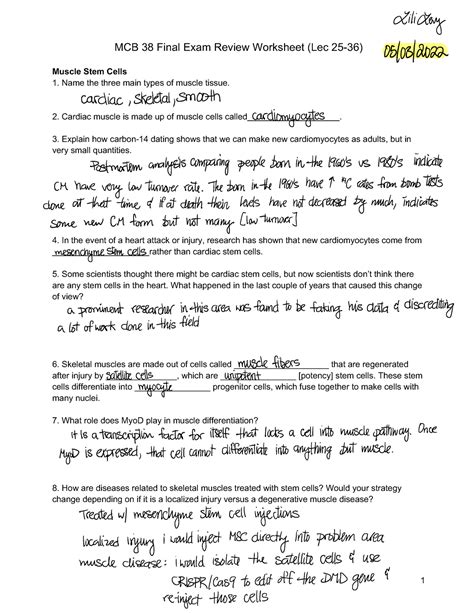 Lili Lay
MCB 38 Final Exam Review Worksheet (Lec 25-36)
05/03/2022
Muscle Stem Cells
1. Name the three main types of muscle tissue.
cardiac, skeletal, smooth
2. Cardiac muscle is made up of muscle cells called cardiomyocytes.
3. Explain how carbon-14 dating shows that we can make new cardiomyocytes as adults, but in
very small quantities.
Postmortem analysis comparing people born in the 1960's vs 1980's indicate
CM have very low turnover rate. The born in the 1960's have ↑ ¹⁴C rates from bomb tests
done at that time & if at death their levels have not decreased by much, indicates
some new CM form but not many [low turnover]
4. In the event of a heart attack or injury, research has shown that new cardiomyocytes come from
mesenchyme stem cells rather than cardiac stem cells.
5. Some scientists thought there might be cardiac stem cells, but now scientists don't think there
are any stem cells in the heart. What happened in the last couple of years that caused this change
of view?
a prominent researcher in this area was found to be faking his data & discrediting
a lot of work done in this field
6. Skeletal muscles are made out of cells called muscle fibers that are regenerated
after injury by satellite cells, which are unipotent [potency] stem cells. These stem
cells differentiate into myocyte progenitor cells, which fuse together to make cells with
many nuclei.
7. What role does MyoD play in muscle differentiation?
it is a transcription factor for itself that locks a cell into muscle pathway. Once
MyoD is expressed, that cell cannot differentiate into anything but muscle.
8. How are diseases related to skeletal muscles treated with stem cells? Would your strategy
change depending on if it is a localized injury versus a degenerative muscle disease?
Treated w/ mesenchyme stem cell injections
localized injury i would inject MSC directly into problem area
muscle disease: i would isolate the satellite cells & use
CRISPR/Cas9 to edit off the DMD gene &
re-inject those cells
1